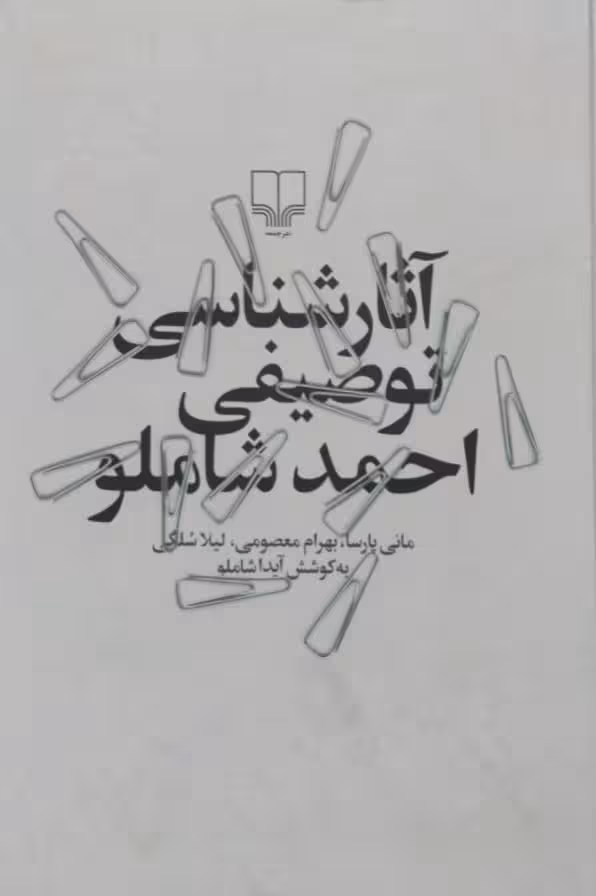 نشرچشمه
آثارشناسی
توصیفی
احمد شاملو
مانی پارسا، بهرام معصومی، لیلا
به‌کوشش آیدا شاملو